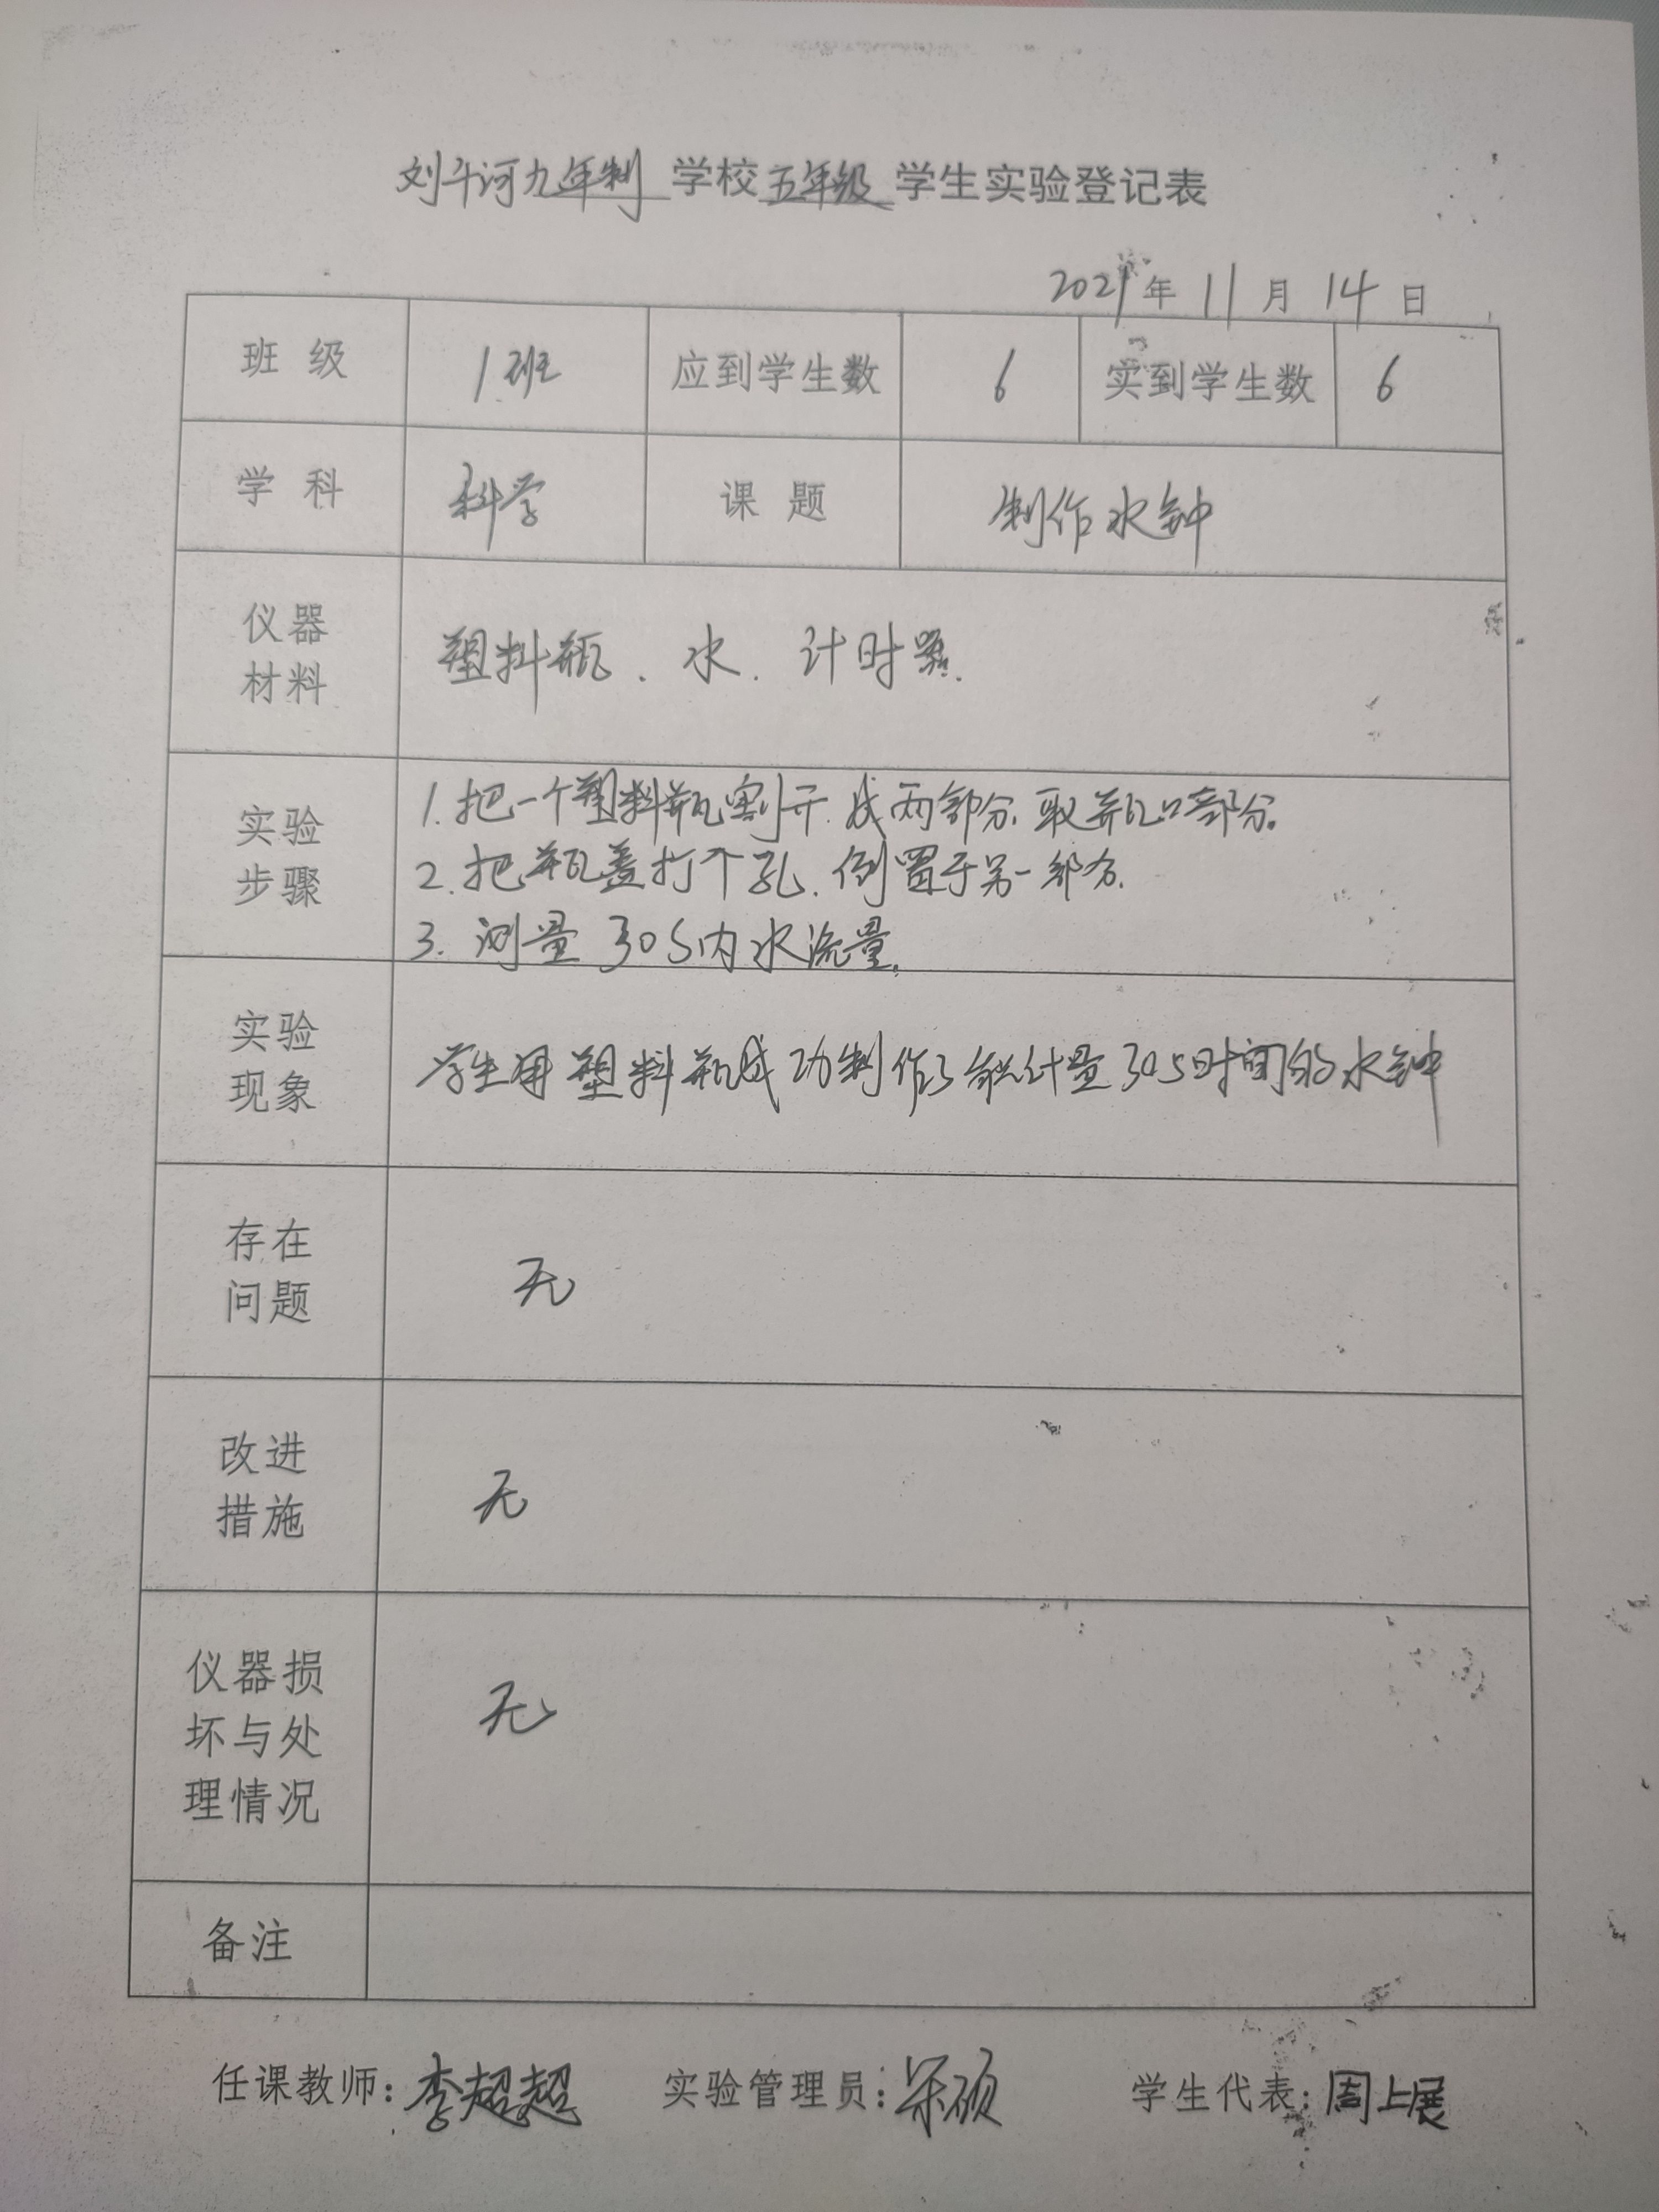 刘斗河九年制 学校 五年级 学生实验登记表
2021年 11月 14日
班 级 1班 应到学生数 6 实到学生数 6
学 科 科学 课 题 制作水钟
仪器
材料
塑料瓶、水、计时器.
实验
步骤
1.把一个塑料瓶割开.成两部分.取瓶口部分。
2.把瓶盖打个孔.倒置于另一部分.
3.测量30S内水流量.
实验
现象
学生用塑料瓶成功制作了能计量30S时间的水钟
存在
问题
无
改进
措施
无
仪器损
坏与处
理情况
无
备注
任课教师:李超超 实验管理员: 学生代表:周上展